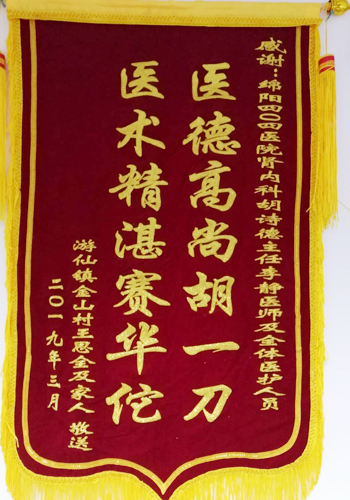 感谢：绵阳四〇四医院肾内科胡诗德主任李静医师及全体医护人员
医德高尚胡一刀
医术精湛赛华佗
游仙镇金山村王思金及家人 敬送
二〇一九年三月